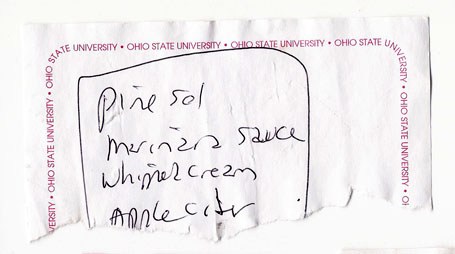 OHIO STATE UNIVERSITY • OHIO STATE UNIVERSITY • OHIO STATE UNIVERSITY • OHIO STATE UNIVERSITY • OHIO STATE UNIVERSITY • OHIO STATE UNIVERSITY • OHIO STATE UNIVERSITY • OHIO STATE UNIVERSITY • OI
Pine Sol
Marinara Sauce
Whipped cream
Apple Cider